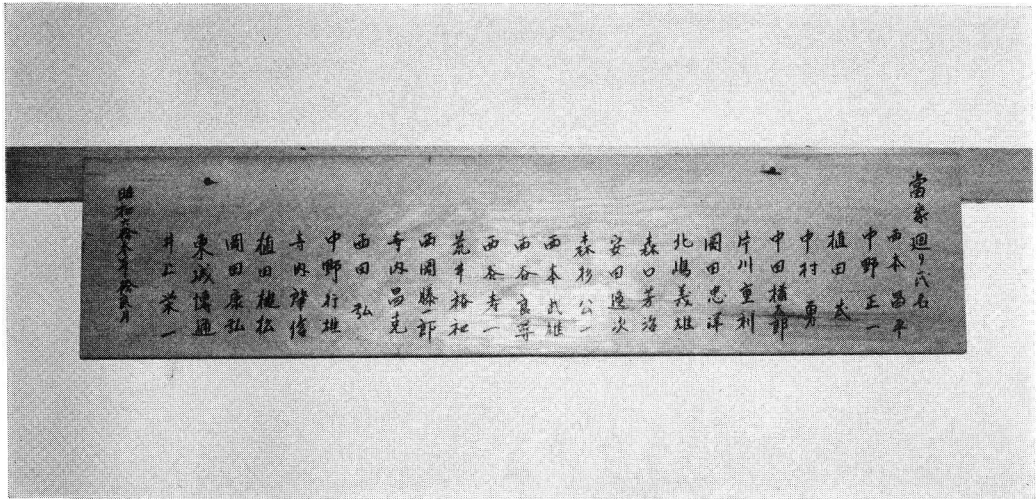 當家廻り氏名
西本昌平
中野正一
植田 武
中村 勇
中田橘太郎
片川重利
岡田忠洋
北嶋義雄
森口芳治
安田逸次
森杉公一
西本武雄
西谷良尊
西谷寿一
荒井裕和
西岡勝一郎
寺内昌克
西田 弘
中野行雄
寺内
植田
岡田康弘
東城博通
井上栄一
昭和六拾年拾弐月